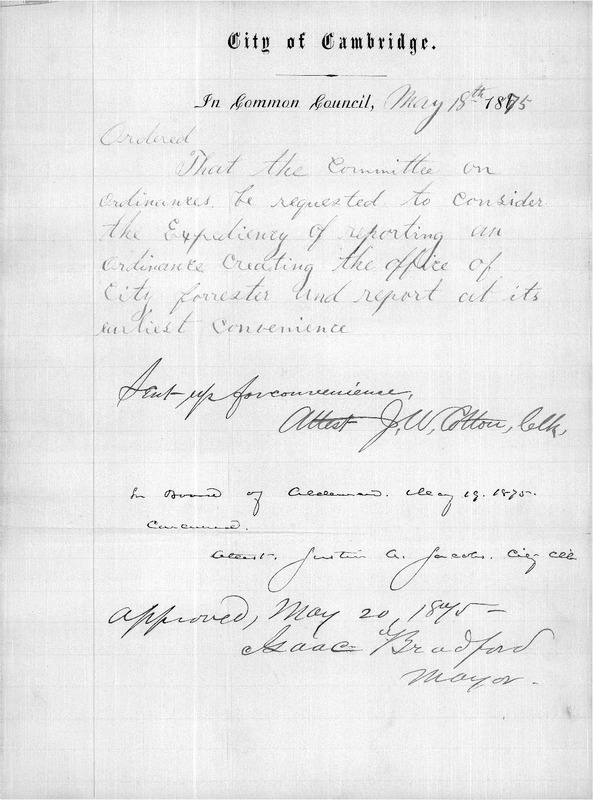 City of Cambridge.
In Common Council, May 18th 1875
Ordered
That the Committee on
Ordinances be requested to consider
the Expediency of reporting an
Ordinance Creating the office of
City forrester and report at its
earliest Convenience
Sent up for convenience,
Attest J. W. Cotton, Clk,
In Board of Aldermen. May 19. 1875.
Concurred.
Attest. Justin A. Jacobs. City Clk
Approved, May 20, 1875—
Isaac Bradford
Mayor.